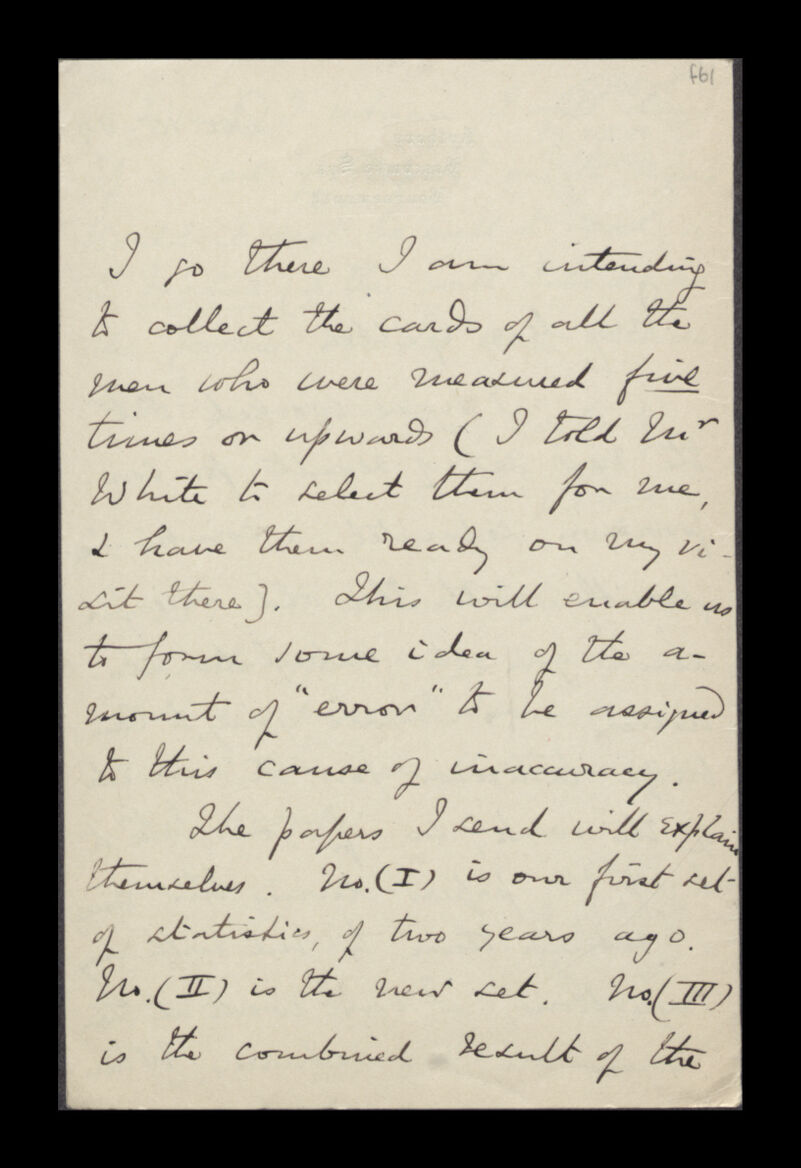 f61
I go there I am intending
to collect the cards of all the
men who were measured five
times or upwards (I told Mr
White to select them for me,
& have them ready on my vi-
sit there). This will enable us
to form some idea of the a-
mount of "error" to be assigned
to this cause of inaccuracy.
The papers I send will explain
themselves. No. (I) is our first set
of statistics, of two years ago.
No. (II) is the new set. No. (III)
is the combined result of the